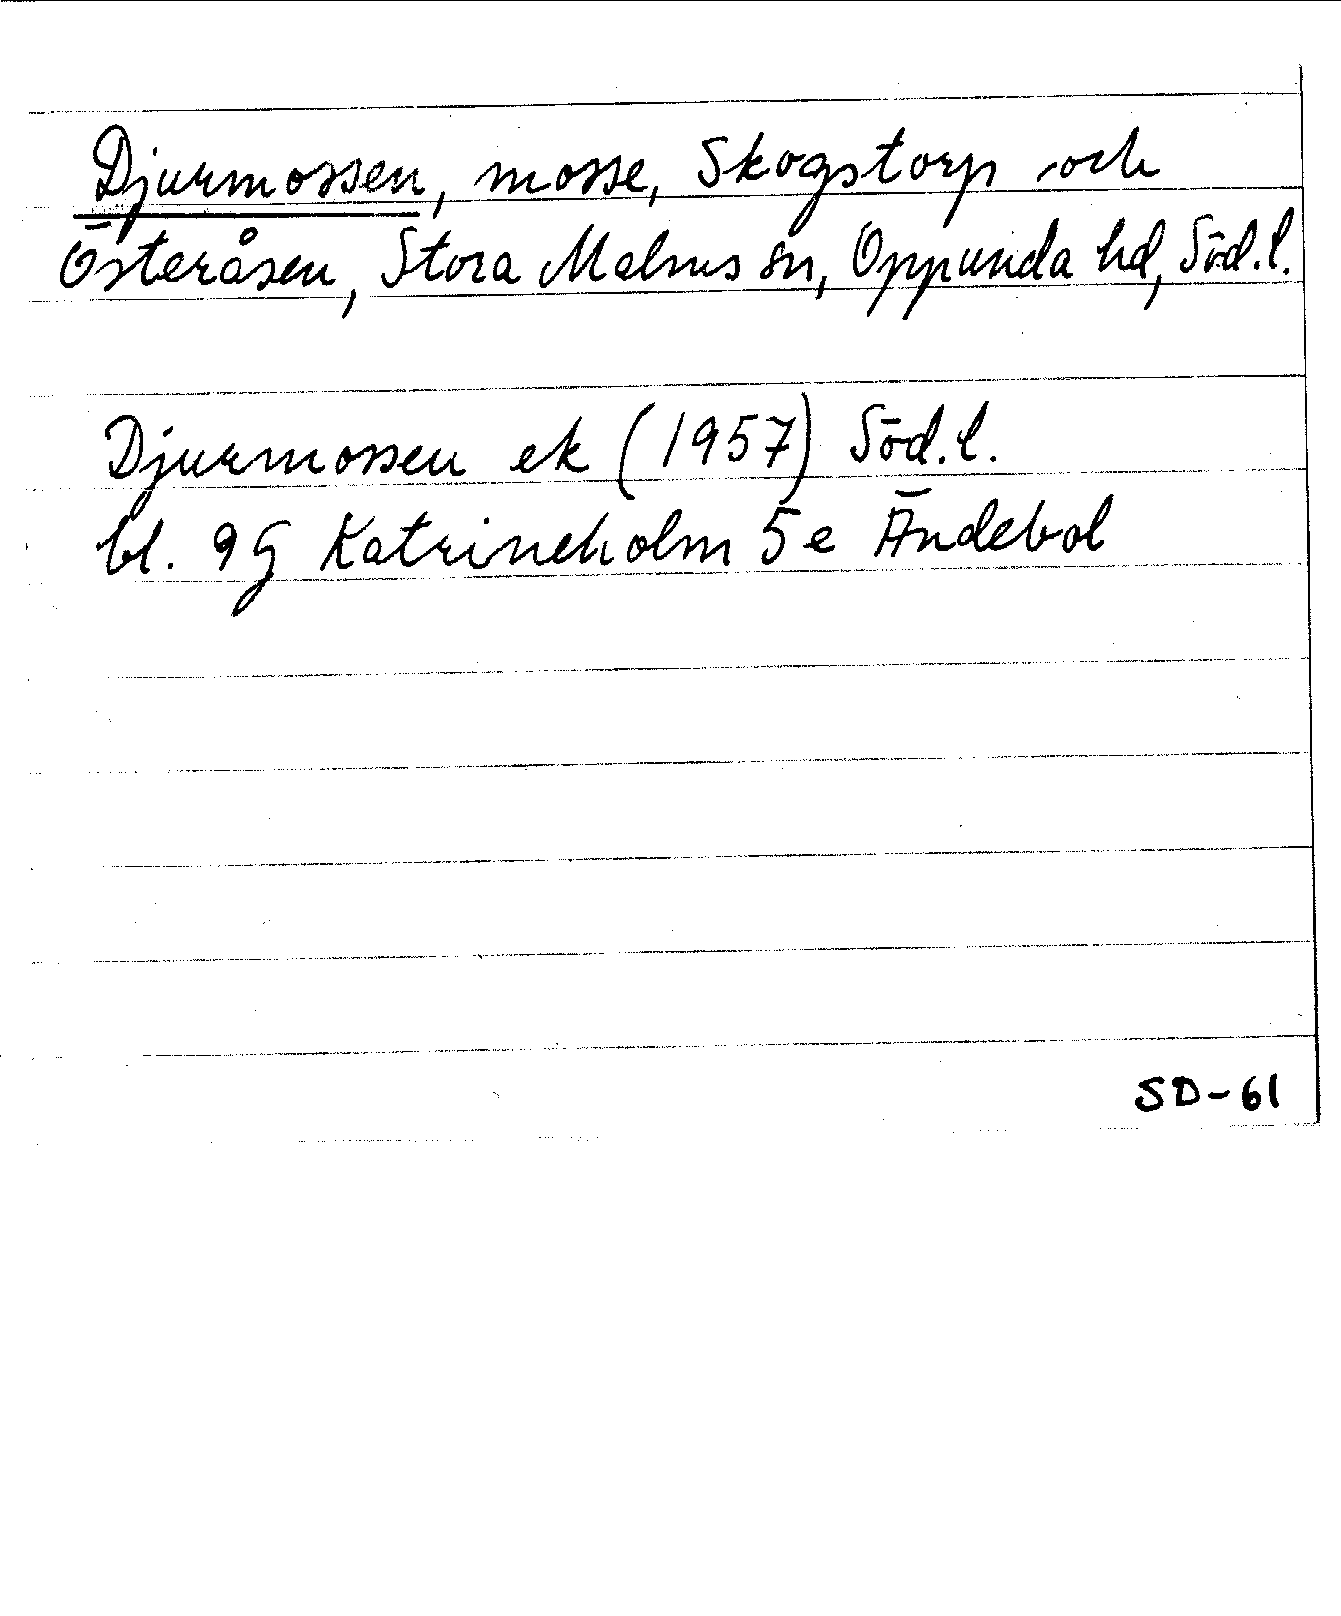 Djurmossen, mosse, Skogstorp och
Österåsen, Stora Malms sn, Oppunda hd, Söd.l.
Djurmossen ek (1957) Söd.l.
bl. 9G Katrineholm 5e Ändebol
SD-61